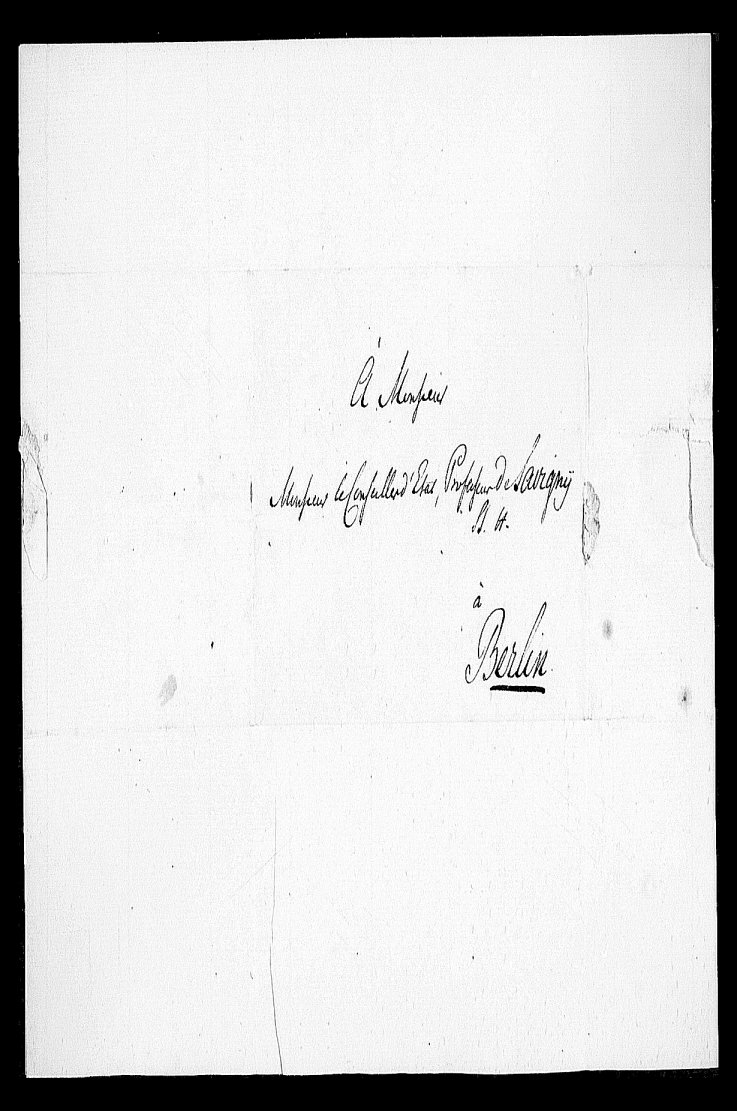 À Monsieur
Monsieur le Conseiller d'Etat, Professeur de Savigny
à
Berlin